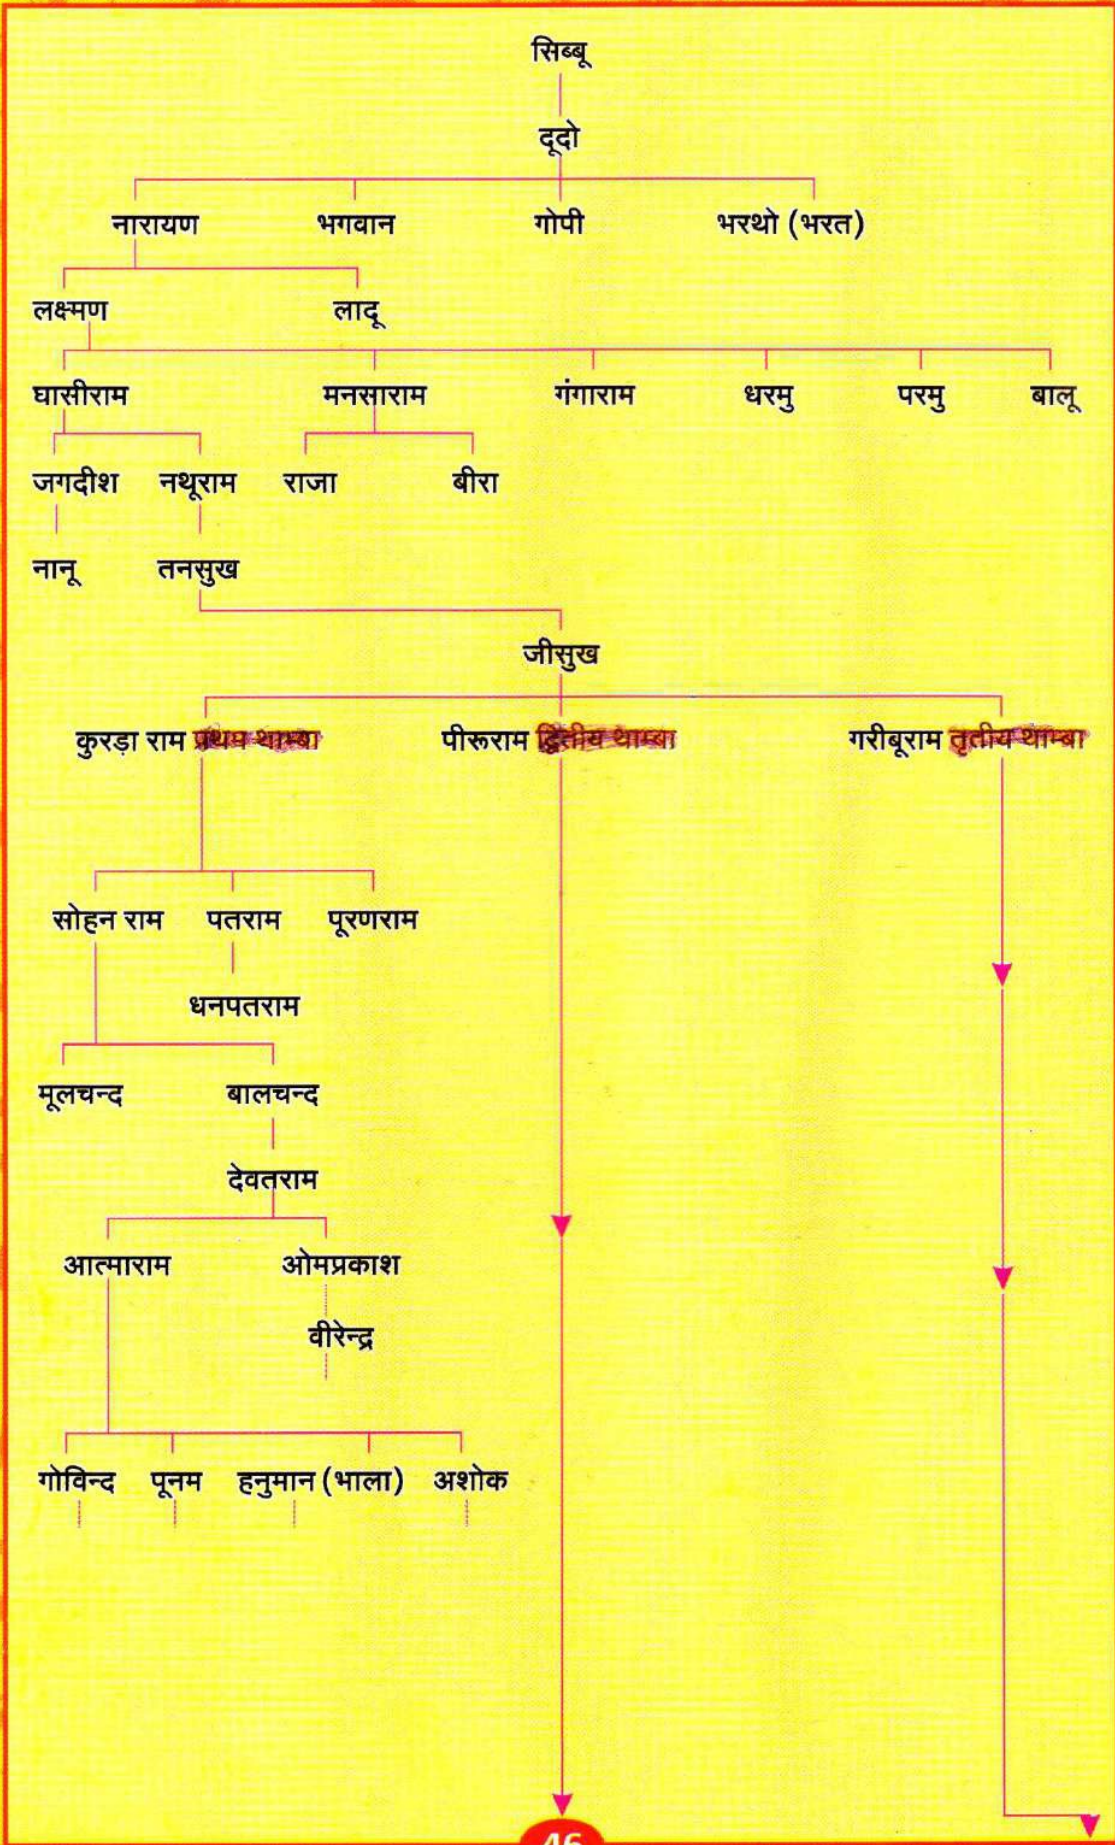 सिब्बू
दूदो
नारायण भगवान गोपी भरथो (भरत)
लक्ष्मण लादू
घासीराम मनसाराम गंगाराम धरमु परमु बालू
जगदीश नथूराम राजा बीरा
नानू तनसुख
जीसुख
कुरड़ा राम प्रथम थाम्बा पीरूराम द्वितीय थाम्बा गरीबूराम तृतीय थाम्बा
सोहन राम पतराम पूरणराम
धनपतराम
मूलचन्द बालचन्द
देवतराम
आत्माराम ओमप्रकाश
वीरेन्द्र
गोविन्द पूनम हनुमान (भाला) अशोक
46